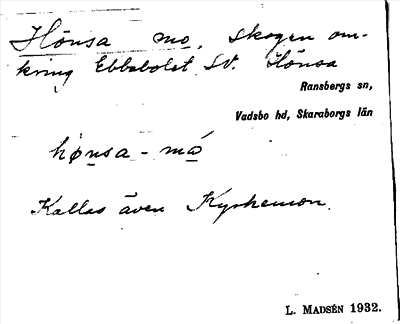 Hönsa mo, skogen om-
kring Ebbabolet SV. Hönsa
Ransbergs sn,
Vadsbo hd, Skaraborgs län
hønsa - mó
Kallas även Kyrkemon.
L. MADSÉN 1932.